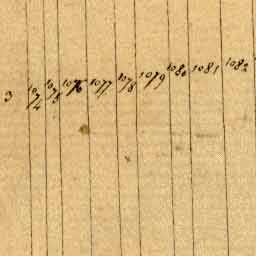 3 1074 1075 1076 1077 1078 1079 1080 1081 1082